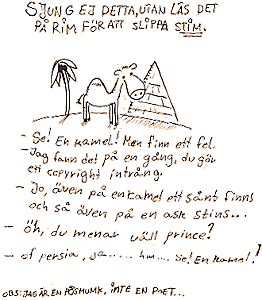 SJUNG EJ DETTA, UTAN LÄS DET
PÅ RIM FÖR ATT SLIPPA STIM.
- Se! En kamel! Men finn ett fel.
- Jag fann det på en gång, du gör
ett copyright intrång.
- Jo, även på en kamel ett sånt finns
och så även på en ask stins...
- Öh, du menar väll prince?
- of persia, ja..... hm.... Se! En kamel!
OBS: JAG ÄR EN PÅSMUNK, INTE EN POET...